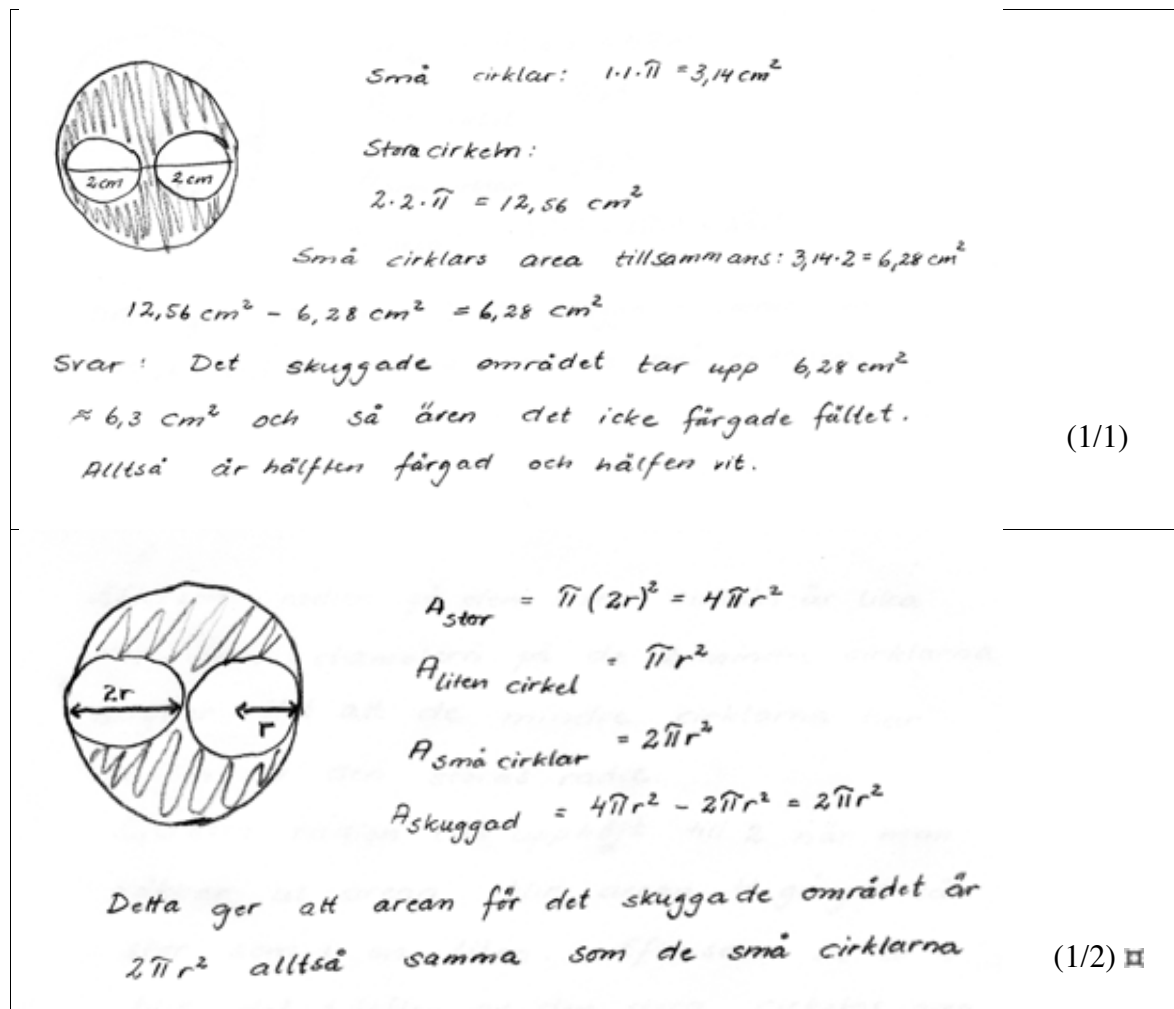 Små cirklar: 1·1·π = 3,14 cm²
Stora cirkeln:
2cm 2cm
2·2·π = 12,56 cm²
Små cirklars area tillsammans: 3,14·2 = 6,28 cm²
12,56 cm² - 6,28 cm² = 6,28 cm²
Svar: Det skuggade området tar upp 6,28 cm²
≈ 6,3 cm² och så även det icke färgade fältet.
(1/1)
Alltså är hälften färgad och hälfen vit.
A stor = π(2r)² = 4πr²
A liten cirkel = πr²
2r
r
A små cirklar = 2πr²
A skuggad = 4πr² - 2πr² = 2πr²
Detta ger att arean för det skuggade området är
2πr² alltså samma som de små cirklarna
(1/2) ¤